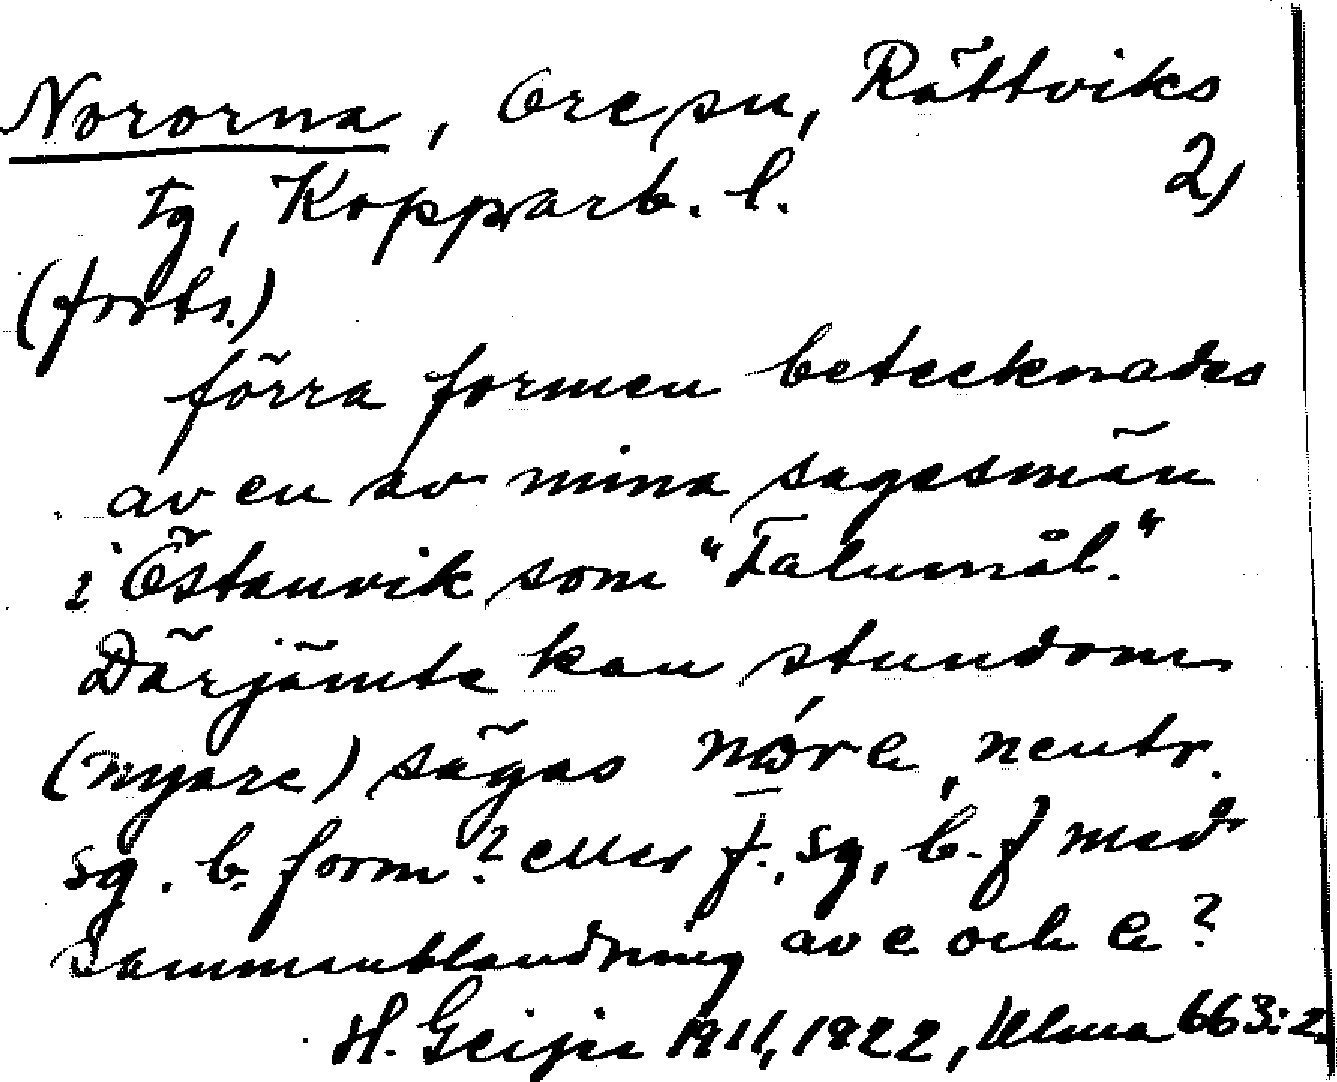 Nororna, Ore sn, Rättviks
tg, Kopparb. l. 2,
(forts.)
förra formen betecknades
av en av mina sagesmän
i Östanvik som "Falumål."
Därjämte kan stundom
(nyare) sägas neutr.
sg. b. form? eller f. sg. b. f med
sammanblandning av e och ?
H. Geijer 1911, 1922, Ulma 663:2